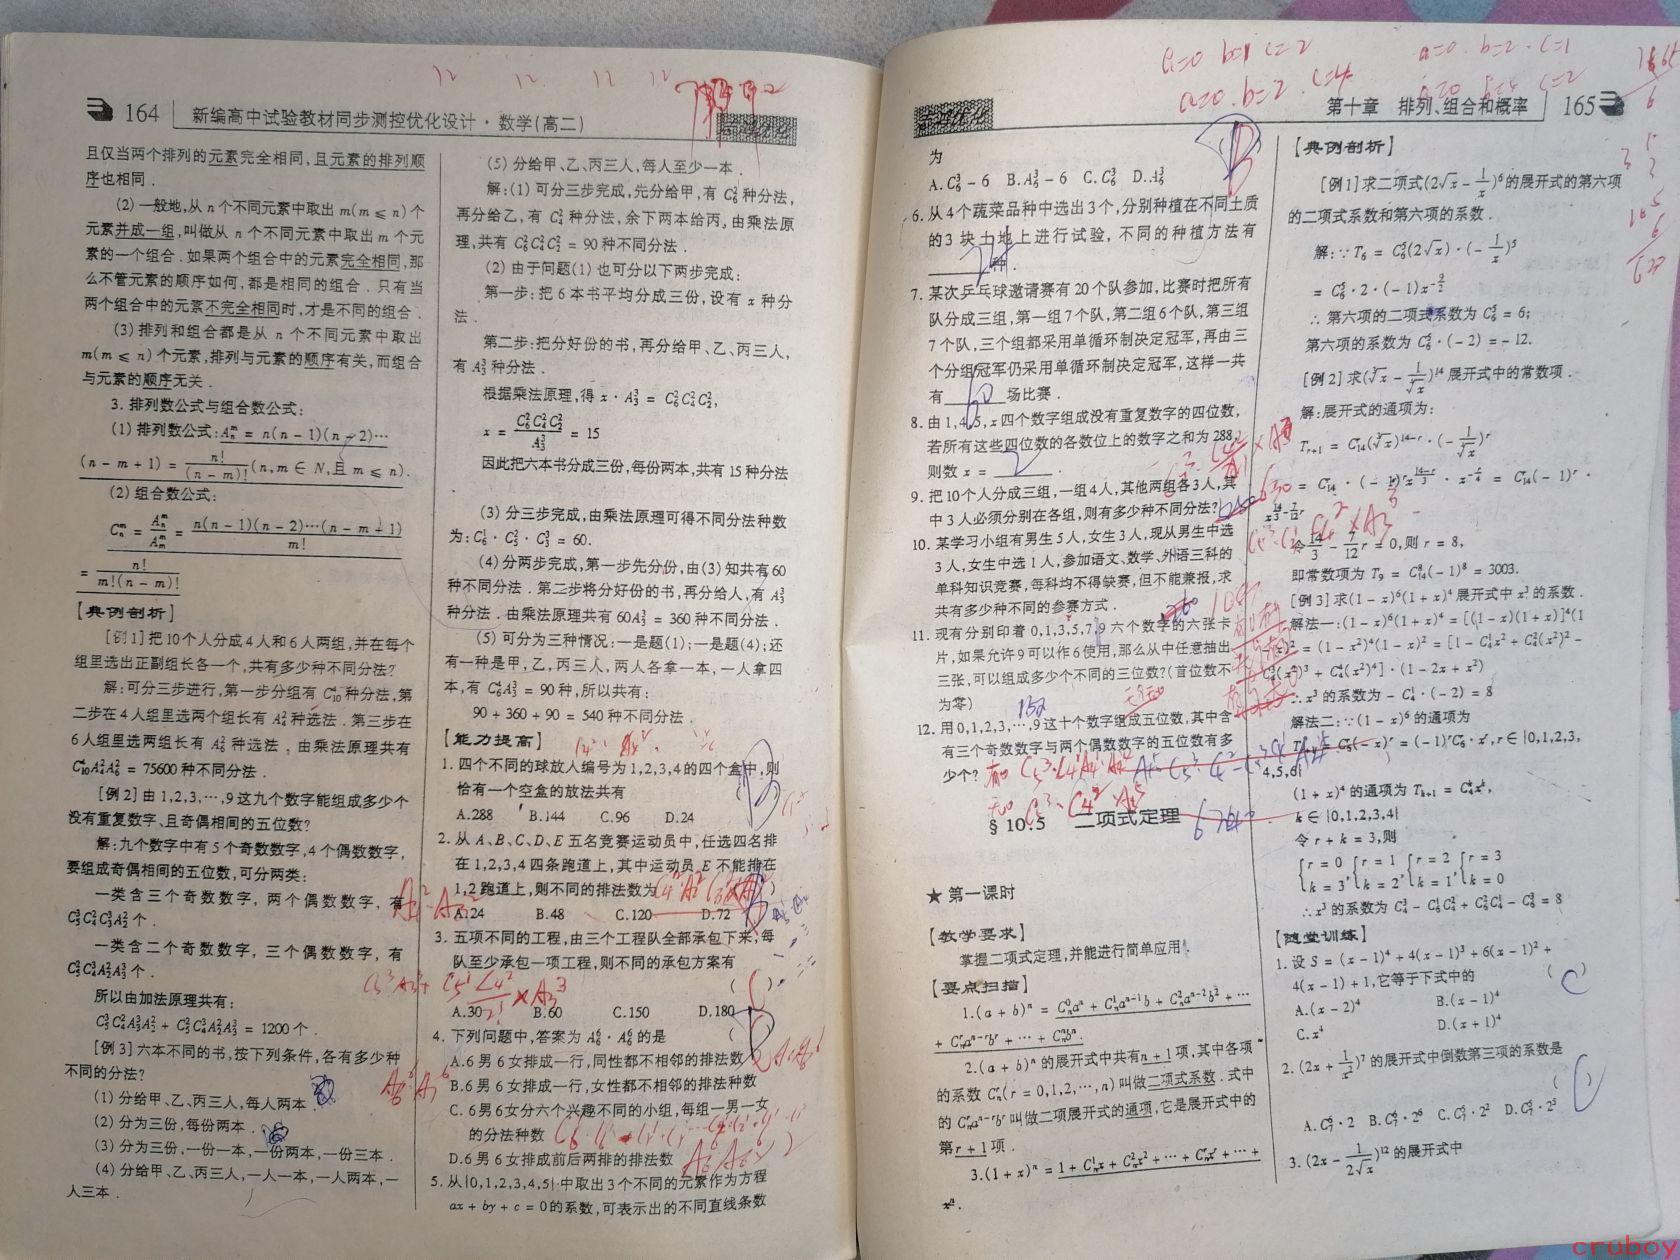 164 新编高中试验教材同步测控优化设计·数学(高二)
且仅当两个排列的元素完全相同,且元素的排列顺
序也相同.
(2) 一般地,从 n 个不同元素中取出 m(m ≤ n) 个
元素并成一组,叫做从 n 个不同元素中取出 m 个元
素的一个组合. 如果两个组合中的元素完全相同,那
么不管元素的顺序如何,都是相同的组合. 只有当
两个组合中的元素不完全相同时,才是不同的组合.
(3) 排列和组合都是从 n 个不同元素中取出
m(m ≤ n) 个元素,排列与元素的顺序有关,而组合
与元素的顺序无关.
3. 排列数公式与组合数公式:
(1) 排列数公式: A_n^m = n(n-1)(n-2)…
(n-m+1) = n!/(n-m)! (n,m ∈ N,且 m ≤ n).
(2) 组合数公式:
C_n^m = A_n^m/A_m^m = n(n-1)(n-2)…(n-m+1)/m!
= n!/m!(n-m)!
【典例剖析】
[例1] 把10个人分成4人和6人两组,并在每个
组里选出正副组长各一个,共有多少种不同分法?
解:可分三步进行,第一步分组有 C_10^4 种分法,第
二步在4人组里选两个组长有 A_4^2 种选法. 第三步在
6人组里选两组长有 A_6^2 种选法, 由乘法原理共有
C_10^4A_4^2A_6^2 = 75600 种不同分法.
[例2] 由 1,2,3,…,9 这九个数字能组成多少个
没有重复数字、且奇偶相间的五位数?
解:九个数字中有5个奇数数字,4个偶数数字,
要组成奇偶相间的五位数,可分两类:
一类含三个奇数数字,两个偶数数字,有
C_5^3C_4^2A_3^3A_2^2 个.
一类含二个奇数数字,三个偶数数字,有
C_5^2C_4^3A_2^2A_3^3 个.
所以由加法原理共有:
C_5^3C_4^2A_3^3A_2^2 + C_5^2C_4^3A_2^2A_3^3 = 1200 个.
[例3] 六本不同的书,按下列条件,各有多少种
不同的分法?
(1) 分给甲、乙、丙三人,每人两本.
(2) 分为三份,每份两本.
(3) 分为三份,一份一本,一份两本,一份三本.
(4) 分给甲、乙、丙三人,一人一本,一人两本,一
人三本.
(5) 分给甲、乙、丙三人,每人至少一本.
解:(1) 可分三步完成,先分给甲,有 C_6^2 种分法,
再分给乙,有 C_4^2 种分法,余下两本给丙,由乘法原
理,共有 C_6^2C_4^2C_2^2 = 90 种不同分法.
(2) 由于问题(1) 也可分以下两步完成:
第一步:把6本书平均分成三份,设有 x 种分
法.
第二步:把分好份的书,再分给甲、乙、丙三人,
有 A_3^3 种分法.
根据乘法原理,得 x·A_3^3 = C_6^2C_4^2C_2^2,
x = C_6^2C_4^2C_2^2/A_3^3 = 15
因此把六本书分成三份,每份两本,共有15种分法
.
(3) 分三步完成,由乘法原理可得不同分法种数
为: C_6^1·C_5^2·C_3^3 = 60.
(4) 分两步完成,第一步先分份,由(3)知共有60
种不同分法. 第二步将分好份的书,再分给人,有 A_3^3
种分法. 由乘法原理共有 60A_3^3 = 360 种不同分法.
(5) 可分为三种情况:一是题(1);一是题(4);还
有一种是甲,乙,丙三人,两人各拿一本,一人拿四
本,有 C_6^4A_3^3 = 90 种,所以共有:
90 + 360 + 90 = 540 种不同分法.
【能力提高】
1. 四个不同的球放人编号为1,2,3,4的四个盒中,则
恰有一个空盒的放法共有
A.288 B.144 C.96 D.24
2. 从 A、B、C、D、E 五名竞赛运动员中,任选四名排
在1,2,3,4四条跑道上,其中运动员 E 不能排在
1,2跑道上,则不同的排法数为
A.24 B.48 C.120 D.72
3. 五项不同的工程,由三个工程队全部承包下来,每
队至少承包一项工程,则不同的承包方案有
A.30 B.60 C.150 D.180
4. 下列问题中,答案为 A_6^6·A_6^6 的是
A.6男6女排成一行,同性都不相邻的排法数
B.6男6女排成一行,女性都不相邻的排法种数
C. 6男6女分六个兴趣不同的小组,每组一男一女
的分法种数
D.6男6女排成前后两排的排法数
5. 从{0,1,2,3,4,5}中取出3个不同的元素作为方程
ax + by + c = 0的系数,可表示出的不同直线条数
第十章 排列、组合和概率 165
a=0 b=1 c=2 a=0. b=2. c=1
a=0. b=2. c=4
为
A. C_6^3 - 6 B. A_6^3 - 6 C. C_6^3 D. A_6^3
6. 从4个蔬菜品种中选出3个,分别种植在不同土质
的3块土地上进行试验,不同的种植方法有
24 种.
7. 某次乒乓球邀请赛有20个队参加,比赛时把所有
队分成三组,第一组7个队,第二组6个队,第三组
7个队,三个组都采用单循环制决定冠军,再由三
个分组冠军仍采用单循环制决定冠军,这样一共
有 60 场比赛.
8. 由1,4,5,x四个数字组成没有重复数字的四位数,
若所有这些四位数的各数位上的数字之和为288,
则数 x = 2 .
9. 把10个人分成三组,一组4人,其他两组各3人,其
中3人必须分别在各组,则有多少种不同分法? 630
10. 某学习小组有男生5人,女生3人,现从男生中选
3人,女生中选1人,参加语文、数学、外语三科的
单科知识竞赛,每科均不得缺赛,但不能兼报,求
共有多少种不同的参赛方式.
11. 现有分别印着 0,1,3,5,7,9 六个数字的六张卡
片,如果允许9可以作6使用,那么从中任意抽出
三张,可以组成多少个不同的三位数?(首位数不
为零) 152
12. 用0,1,2,3,…,9这十个数字组成五位数,其中含
有三个奇数数字与两个偶数数字的五位数有多
少个?
§10.5 二项式定理
★ 第一课时
【教学要求】
掌握二项式定理,并能进行简单应用.
【要点扫描】
1.(a + b)^n = C_n^0a^n + C_n^1a^{n-1}b + C_n^2a^{n-2}b^2 + …
+ C_n^ra^{n-r}b^r + … + C_n^nb^n.
2.(a + b)^n 的展开式中共有 n+1 项,其中各项
的系数 C_n^r(r = 0,1,2,…,n) 叫做二项式系数. 式中
的 C_n^ra^{n-r}b^r 叫做二项展开式的通项,它是展开式中的
第 r+1 项.
3.(1 + x)^n = 1 + C_n^1x + C_n^2x^2 + … + C_n^rx^r + … +
x^n.
【典例剖析】
[例1] 求二项式(2√x - 1/x)^6的展开式的第六项
的二项式系数和第六项的系数.
解:∵ T_6 = C_6^5(2√x)·(-1/x)^5
= C_6^5·2·(-1)x^{-9/2}
∴ 第六项的二项式系数为 C_6^5 = 6;
第六项的系数为 C_6^5·(-2) = -12.
[例2] 求(∛x - 1/√x)^14 展开式中的常数项.
解:展开式的通项为:
令 14/3 - 7/12 r = 0,则 r = 8,
即常数项为 T_9 = C_14^8(-1)^8 = 3003.
[例3] 求(1-x)^6(1+x)^4 展开式中 x^3 的系数.
解法一:(1-x)^6(1+x)^4 = [(1-x)(1+x)]^4(1
-x)^2 = (1-x^2)^4(1-x)^2 = [1 - C_4^1x^2 + C_4^2(x^2)^2 -
C_4^3(x^2)^3 + C_4^4(x^2)^4]·(1-2x+x^2)
∴ x^3 的系数为 -C_4^1·(-2) = 8
解法二:∵(1-x)^6 的通项为
T_{r+1} = C_6^r(-x)^r = (-1)^rC_6^r·x^r,r∈{0,1,2,3,
4,5,6}
(1+x)^4 的通项为 T_{k+1} = C_4^kx^k,
k ∈ {0,1,2,3,4}
令 r + k = 3,则
{r = 0 k = 3, {r = 1 k = 2, {r = 2 k = 1, {r = 3 k = 0
∴ x^3 的系数为 C_4^3 - C_6^1C_4^2 + C_6^2C_4^1 - C_6^3 = 8
【随堂训练】
1. 设 S = (x-1)^4 + 4(x-1)^3 + 6(x-1)^2 +
4(x-1) + 1,它等于下式中的 ( C )
A.(x-2)^4 B.(x-1)^4
C.x^4 D.(x+1)^4
2. (2x + 1/x^2)^7 的展开式中倒数第三项的系数是
A.C_7^6·2 B.C_7^6·2^6 C.C_7^5·2^2 D.C_7^5·2^5
3. (2x - 1/(2√x))^12 的展开式中
cruboy